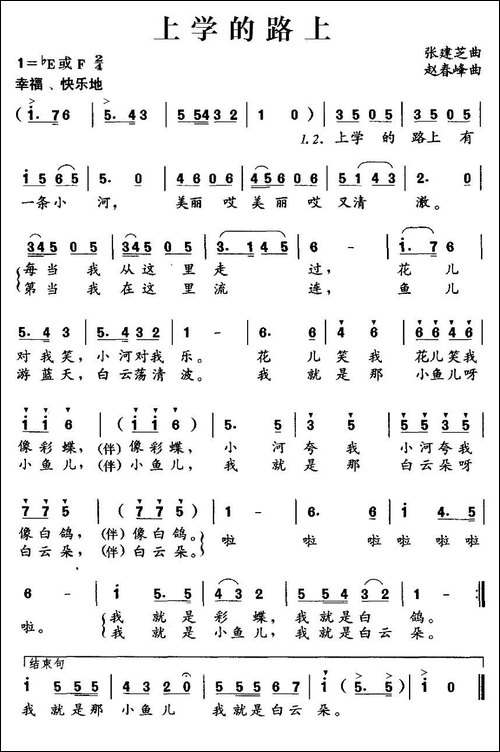 上学的路上
1=♭E或F 2/4
张建芝曲
赵春峰曲
幸福、快乐地
(i. 76 | 5. 43 | 55432 | 1 0) | 3505 | 3505 |
1.2.上学 的 路上 有
i565 | 5. 0 | 4606 | 45606 | 5143 | 2. 0 |
一条小 河, 美丽 哎 美丽 哎 又清 澈。
34505 | 34505 | 3. 145 | 6 - | i. 76 |
每当 我 从这 里 走 过, 花 儿
第当 我 在这 里 流 连, 鱼 儿
5. 43 | 5. 432 | 1 - | 6. 6 | 4 6 | 6646 |
对我笑,小河对我 乐。 花 儿 笑 我 花儿笑我
游蓝天,白云荡清 波。 我 就 是 那 小鱼儿呀
i i 6 | (i i 6) | 5. 5 | 3 5 | 5535 |
像彩蝶,(伴)像彩蝶, 小 河 夸 我 小河夸我
小鱼儿,(伴)小鱼儿, 我 就 是 那 白云朵呀
775 | (775) | 1 - | 6. 6 | i - | i 4 5 |
像白鸽,(伴)像白鸽。 啦 啦 啦 啦 啦 啦 啦
白云朵,(伴)白云朵。
6 - | i 5.5 | 432 | 55432 | 1 - :||
啦。 我 就 是 彩 蝶, 我 就 是 白 鸽。
我 就 是 小鱼 儿, 我 就 是 白云 朵。
结束句
i 555 | 4320 | 5555 | i (5.5 | i 0) ||
我 就是那 小鱼 儿 我就是白云 朵。